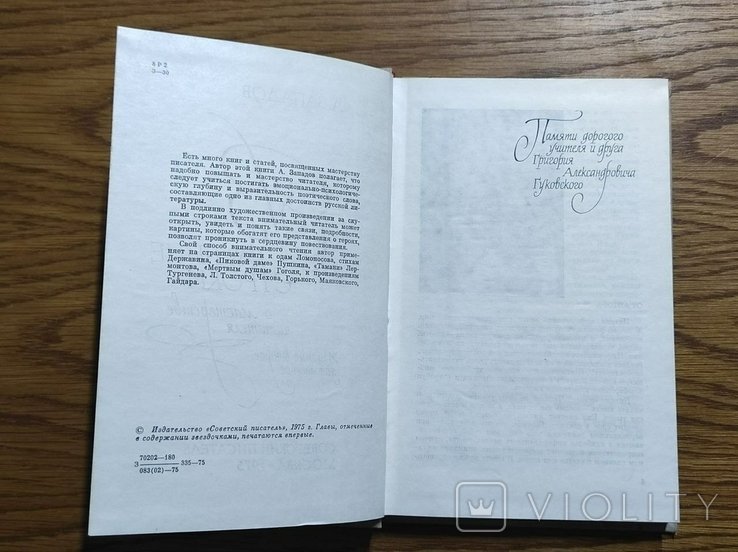 8 Р 2
З—30
Есть много книг и статей, посвященных мастерству
писателя. Автор этой книги А. Западов полагает, что
надобно повышать и мастерство читателя, которому
следует учиться постигать эмоционально-психологиче-
скую глубину и выразительность поэтического слова,
составляющие одно из главных достоинств русской ли-
тературы.
В подлинно художественном произведении за ску-
пыми строками текста внимательный читатель может
открыть, увидеть и понять такие связи, подробности,
картины, которые обогатят его представления о героях,
позволят проникнуть в сердцевину повествования.
Свой способ внимательного чтения автор приме-
няет на страницах книги к одам Ломоносова, стихам
Державина, «Пиковой даме» Пушкина, «Тамани» Лер-
монтова, «Мертвым душам» Гоголя, к произведениям
Тургенева, Л. Толстого, Чехова, Горького, Маяковского,
Гайдара.
© Издательство «Советский писатель», 1975 г. Главы, отмеченные
в содержании звездочками, печатаются впервые.
70202—180
З 335—75
083(02)—75
Памяти дорогого
учителя и друга
Григория
Александровича
Гуковского
VIOLITY